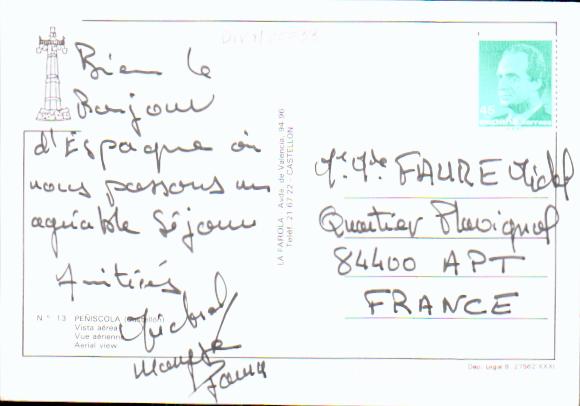 Bien le
Bonjour
d'Espagne où
nous passons un
agréable Séjour
Amitiés
N.° 13 PEÑISCOLA
Vista aérea
Vue aérienne
Aerial view
LA FAROLA - Avda. de Valencia, 94-96
Teléf. 21 67 22 - CASTELLON
45
FAURE
Quartier
84400 APT
FRANCE
Dep. Legal B. 27562 XXXI